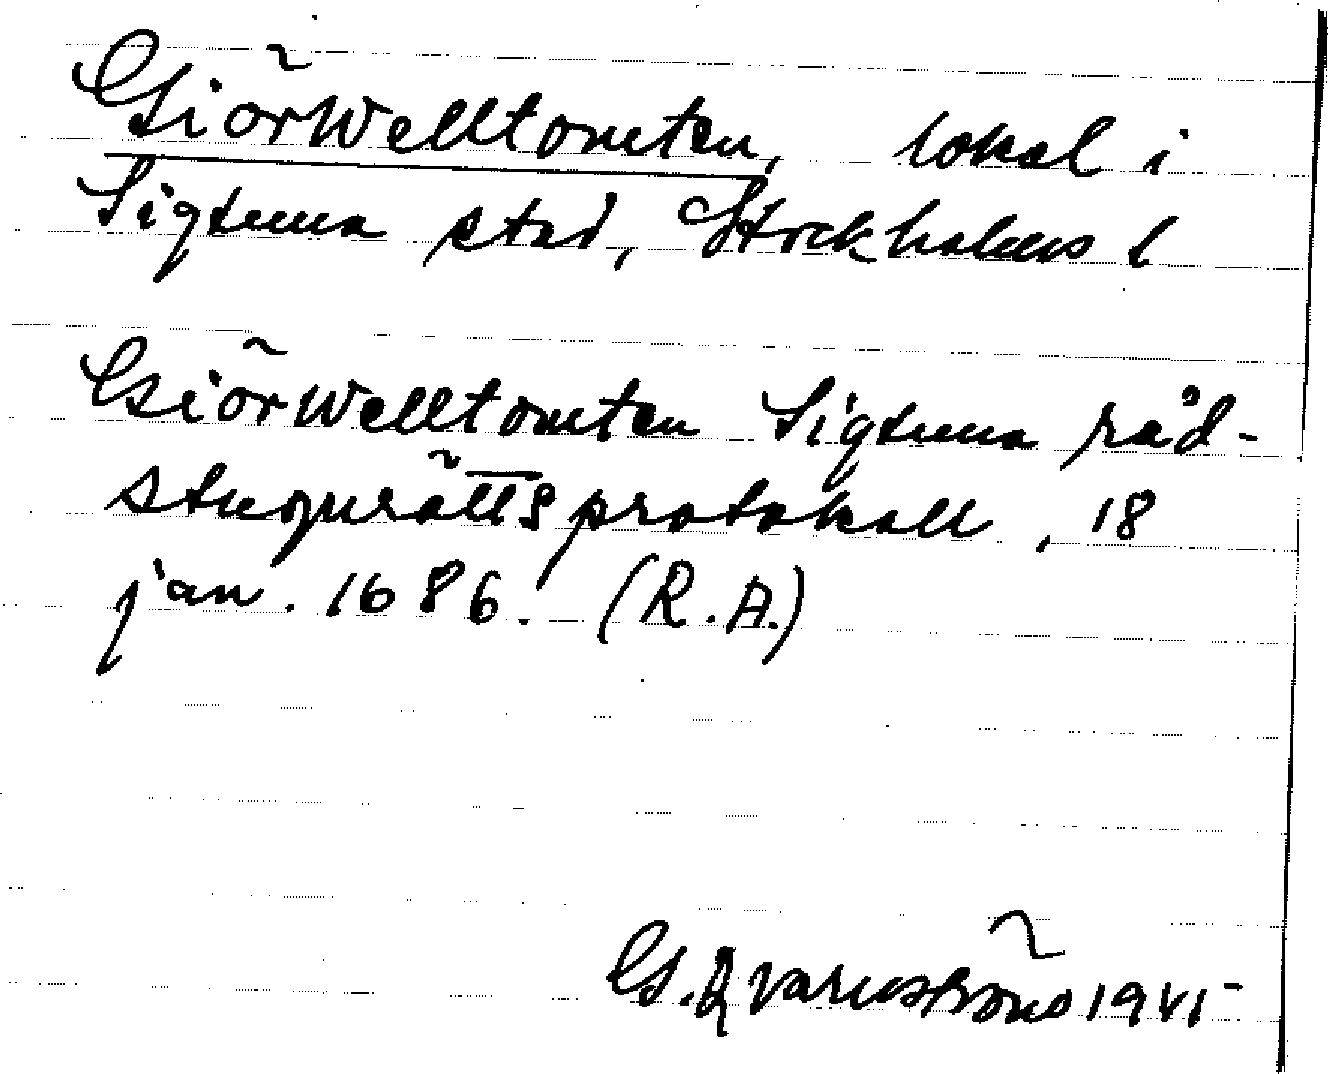 Giörwelltomten, lokal i
Sigtuna stad, Stockholms l
Giörwelltomten Sigtuna råd-
stugurätts protokoll, 18
jan. 1686. (R.A.)
G. Qvarnström